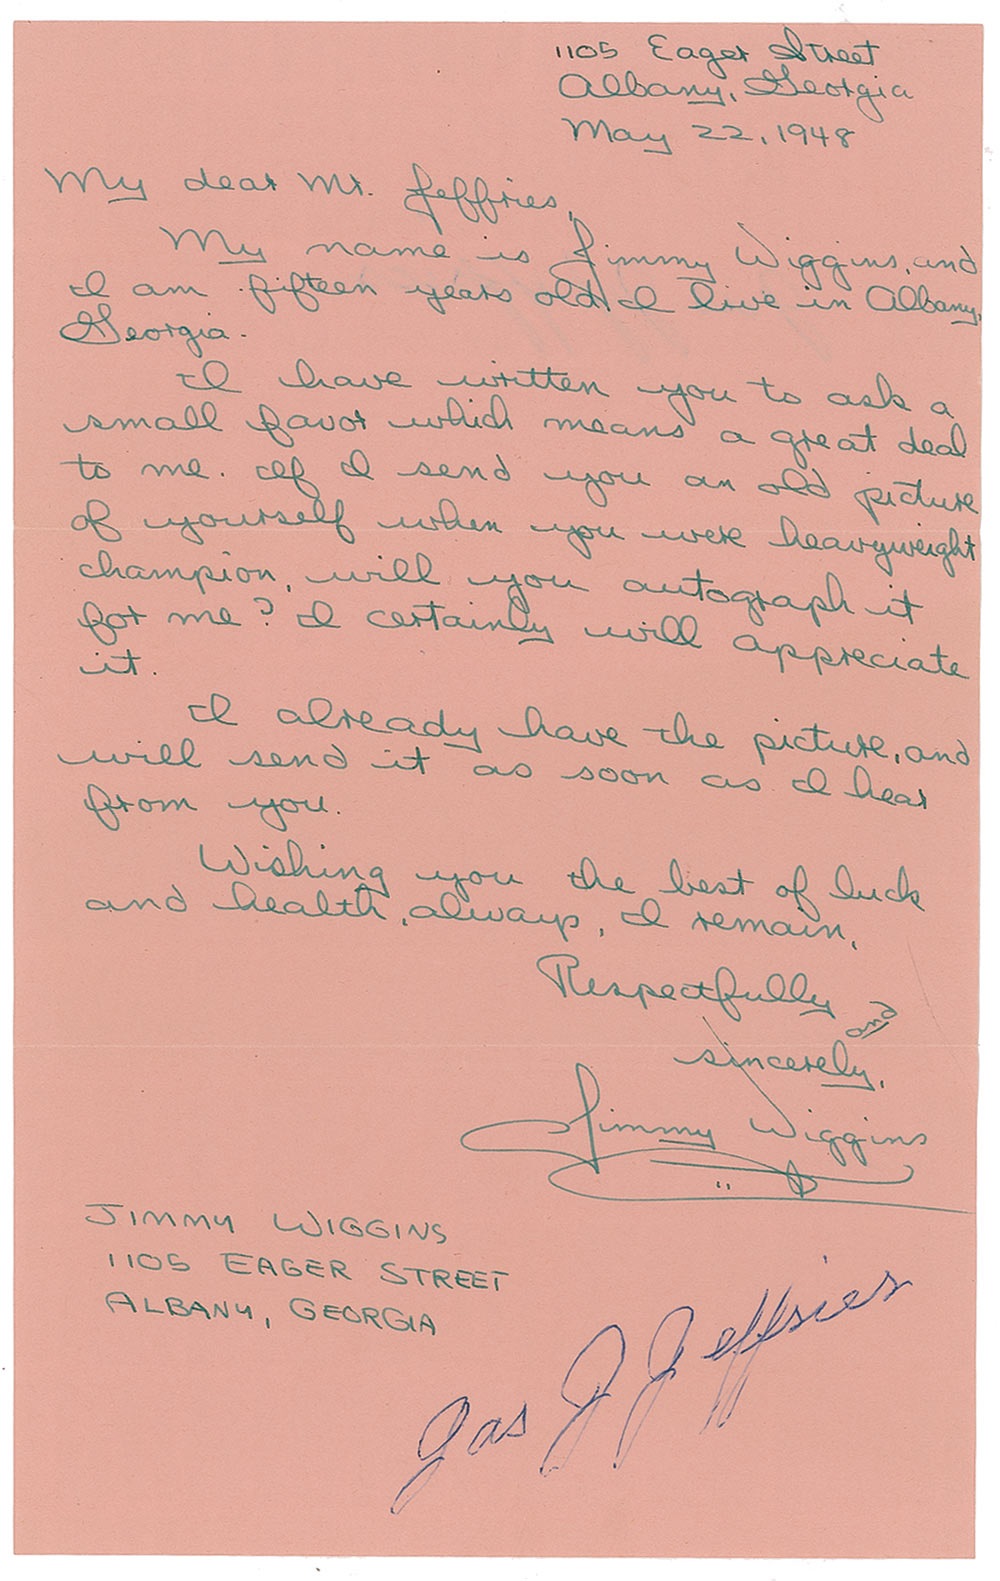 1105 Eager Street
Albany, Georgia
May 22, 1948
My dear Mr. Jeffries,
My name is Jimmy Wiggins, and
I am fifteen years old. I live in Albany,
Georgia.
I have written you to ask a
small favor which means a great deal
to me. If I send you an old picture
of yourself when you were heavyweight
champion, will you autograph it
for me? I certainly will appreciate
it.
I already have the picture, and
will send it as soon as I hear
from you.
Wishing you the best of luck
and health, always, I remain,
Respectfully and
sincerely,
Jimmy Wiggins
JIMMY WIGGINS
1105 EAGER STREET
ALBANY, GEORGIA
Jas J Jeffries